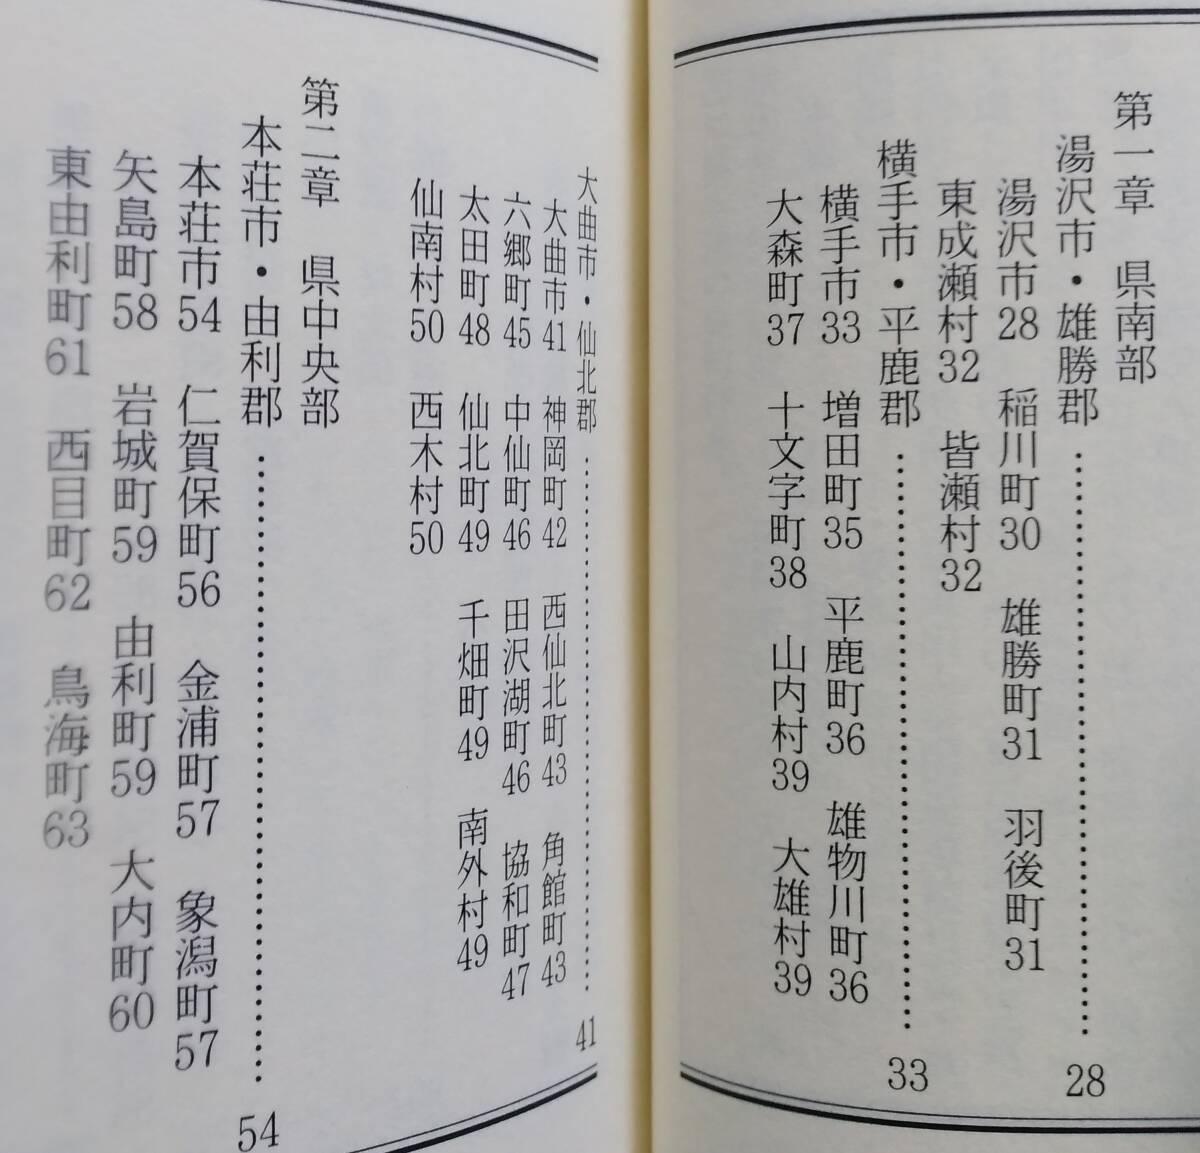 第一章　県南部
湯沢市・雄勝郡……………………………28
湯沢市28　稲川町30　雄勝町31　羽後町31
東成瀬村32　皆瀬村32
横手市・平鹿郡……………………………33
横手市33　増田町35　平鹿町36　雄物川町36
大森町37　十文字町38　山内村39　大雄村39
大曲市・仙北郡……………………………41
大曲市41　神岡町42　西仙北町43　角館町43
六郷町45　中仙町46　田沢湖町46　協和町47
太田町48　仙北町49　千畑町49　南外村49
仙南村50　西木村50
第二章　県中央部
本荘市・由利郡……………………………54
本荘市54　仁賀保町56　金浦町57　象潟町57
矢島町58　岩城町59　由利町59　大内町60
東由利町61　西目町62　鳥海町63